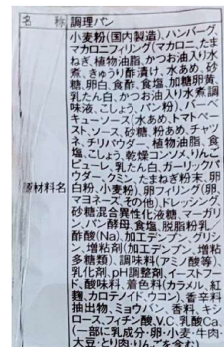 名 称 調理パン
小麦粉(国内製造)、ハンバーグ
マカロニフィリング(マカロニ、たま
ねぎ、植物油脂、かつお油入り水
煮、きゅうり酢漬け、水あめ、砂
糖、卵白、食酢、食塩、加糖卵黄、
乳たん白、かつお油入り水煮調
味液、こしょう)、パン粉)、バーベ
キューソース(水あめ、トマトペー
スト、ソース、砂糖、粉あめ、チャツ
ネ、チリパウダー、植物油脂、食
塩、こしょう、乾燥コンメ、りんご
ピューレ、乳たん白、ガーリックパ
ウダー、クミン、たまねぎ粉末、卵
原材料名 白粉、小麦粉)、卵フィリング(卵、
マヨネーズ、その他)、ドレッシング、
砂糖混合異性化液糖、マーガリ
ン、パン酵母、食塩、脱脂粉乳/
酢酸(Na)、加工デンプン、グリシ
ン、増粘剤(加工デンプン、増粘
多糖類)、調味料(アミノ酸等)、
乳化剤、pH調整剤、イーストフー
ド、酸味料、着色料(カラメル、紅
麹、カロテノイド、ウコン)、香辛料
抽出物、ミョウバン、香料、キシ
ロース、フィチン酸、V.C、乳酸Ca
(一部に乳成分・卵・小麦・牛肉・
大豆・とり肉・りんごを含む)